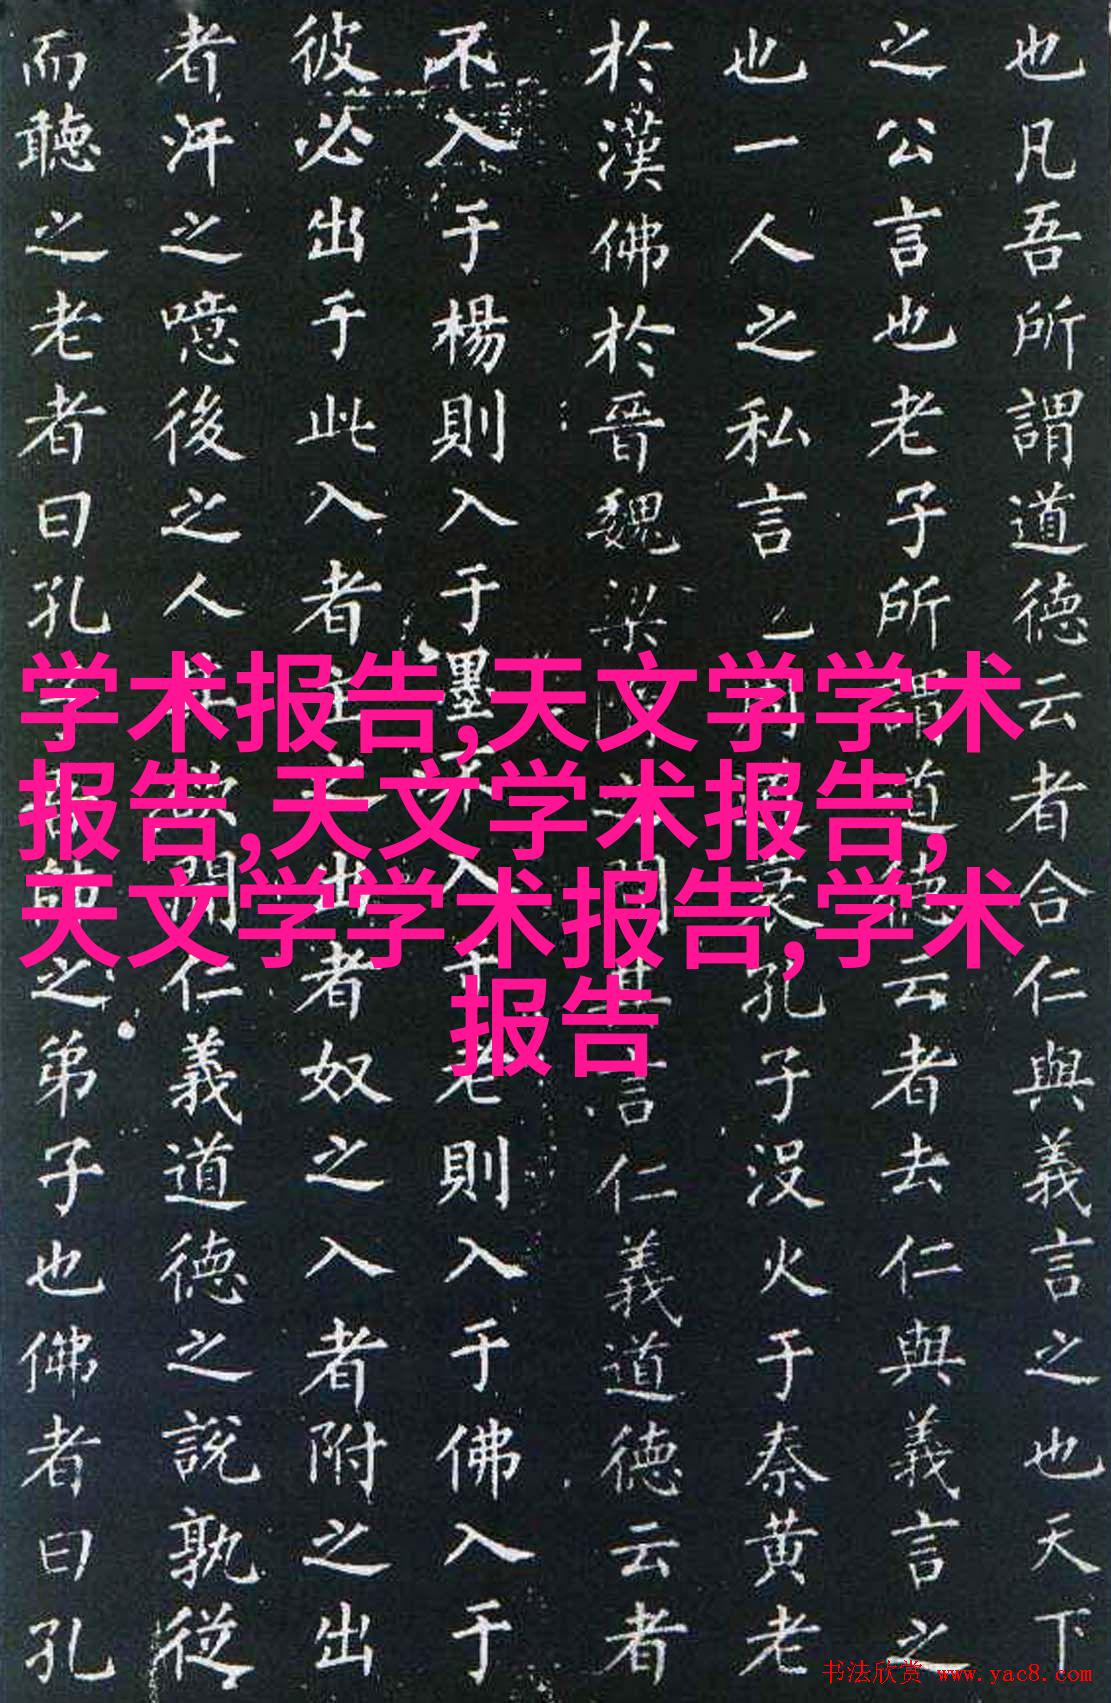 也凡吾所謂道德云者合仁與義言之也天下
之公言也老子所謂道德云者去仁與義言之
也一人之私言也周道衰孔子没火于秦黄老
於漢佛於晉魏梁隋之間其言仁義道德云者
不入于楊則入于墨不入于老則入于佛入于
彼必出于此入者主之出者奴之入者附之出
者汙之噫後之人其欲聞仁義道德之說孰從
而聽之老者曰孔吾師之弟子也佛者曰孔
学术报告,天文学学术
报告,天文学术报告,
天文学学术报告,学术
报告
书法欣赏 www.yac8.com